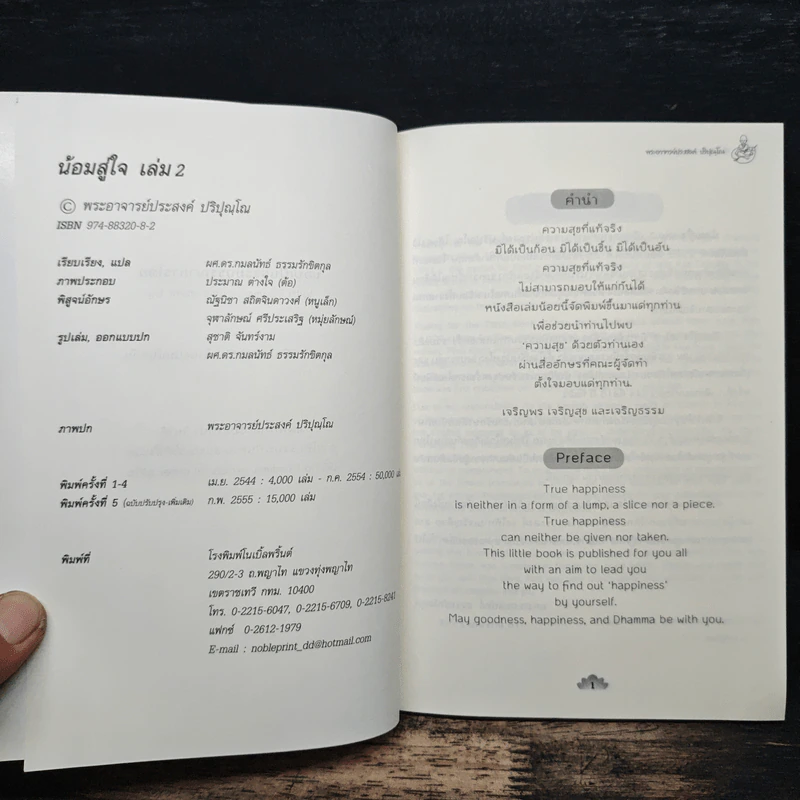 น้อมสู่ใจ เล่ม 2
© พระอาจารย์ประสงค์ ปริปุณฺโณ
ISBN 974-88320-8-2
เรียบเรียง, แปล ผศ.ดร.กมลนัทธ์ ธรรมรักขิตกุล
ภาพประกอบ ประมาณ ต่างใจ (ต้อ)
พิสูจน์อักษร ณัฐนิชา สถิตจินดาวงศ์ (หนูเล็ก)
จุฬาลักษณ์ ศรีประเสริฐ (หมุ่ยลักษณ์)
รูปเล่ม, ออกแบบปก สุชาติ จันทร์งาม
ผศ.ดร.กมลนัทธ์ ธรรมรักขิตกุล
ภาพปก พระอาจารย์ประสงค์ ปริปุณฺโณ
พิมพ์ครั้งที่ 1-4 เม.ย. 2544 : 4,000 เล่ม - ก.ค. 2554 : 50,000
พิมพ์ครั้งที่ 5 (ฉบับปรับปรุง-เพิ่มเติม) ก.พ. 2555 : 15,000 เล่ม
พิมพ์ที่ โรงพิมพ์โนเบิ้ลพริ้นต์
290/2-3 ถ.พญาไท แขวงทุ่งพญาไท
เขตราชเทวี กทม. 10400
โทร. 0-2215-6047, 0-2215-6709, 0-2215-8241
แฟกซ์ 0-2612-1979
E-mail : nobleprint_dd@hotmail.com
พระอาจารย์ประสงค์ ปริปุณฺโณ
คำนำ
ความสุขที่แท้จริง
มิได้เป็นก้อน มิได้เป็นชิ้น มิได้เป็นอัน
ความสุขที่แท้จริง
ไม่สามารถมอบให้แก่กันได้
หนังสือเล่มน้อยนี้จัดพิมพ์ขึ้นมาแด่ทุกท่าน
เพื่อช่วยนำท่านไปพบ
‘ความสุข’ ด้วยตัวท่านเอง
ผ่านสื่ออักษรที่คณะผู้จัดทำ
ตั้งใจมอบแด่ทุกท่าน.
เจริญพร เจริญสุข และเจริญธรรม
Preface
True happiness
is neither in a form of a lump, a slice nor a piece.
True happiness
can neither be given nor taken.
This little book is published for you all
with an aim to lead you
the way to find out ‘happiness’
by yourself.
May goodness, happiness, and Dhamma be with you.
1